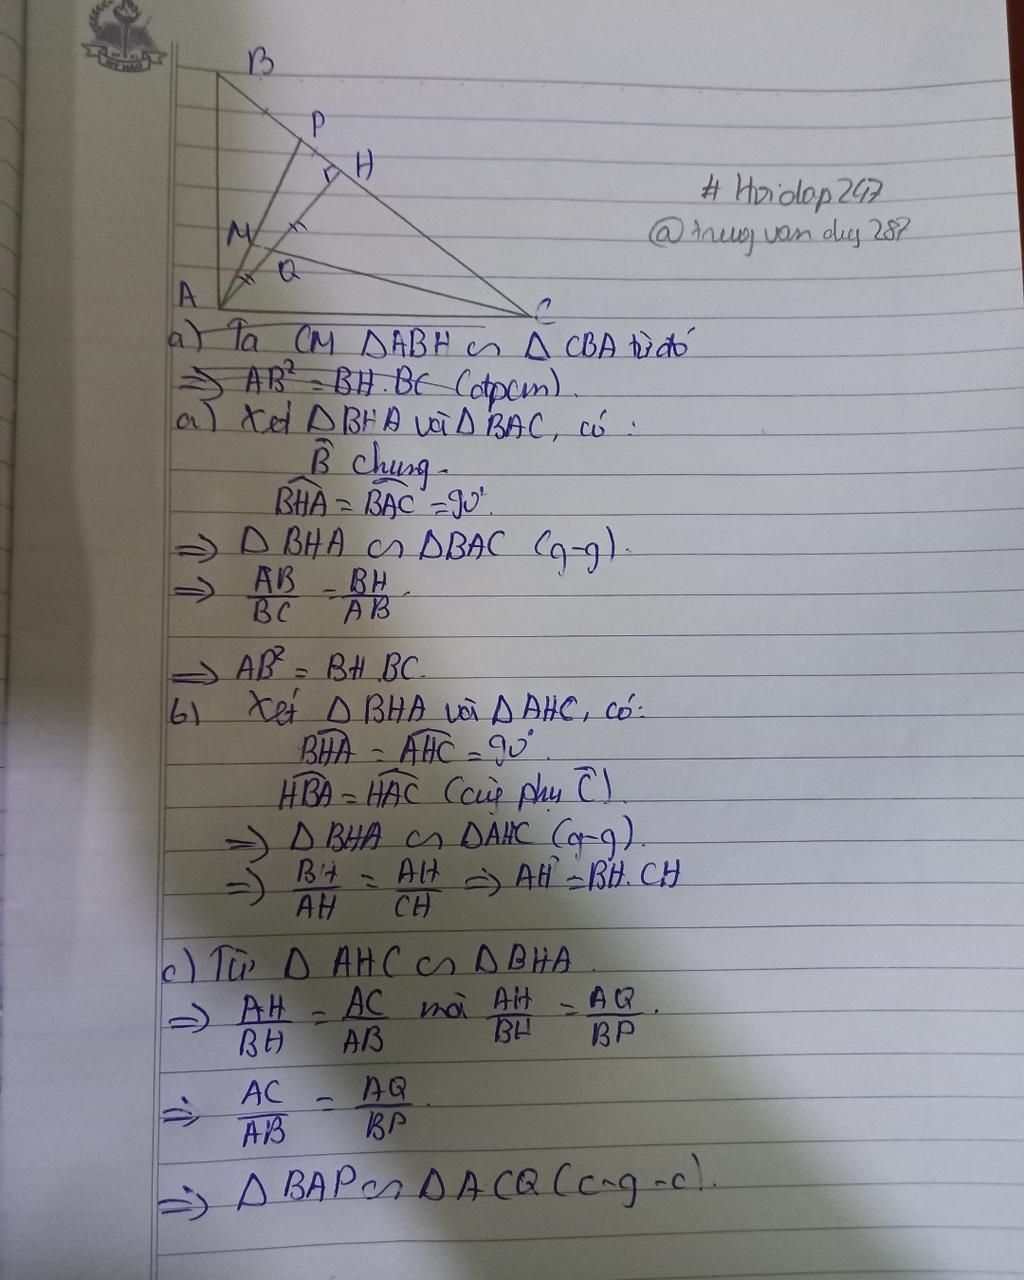 B
P
H
# Hoidap247
@trungvanduy287
M
Q
A
C
a) Ta CM ΔABH ∽ Δ CBA từ đó
⇒ AB² = BH.BC (đpcm).
a) Xét ΔBHA và ΔBAC, có :
B̂ chung.
BHA = BAC = 90°.
⇒ ΔBHA ∽ ΔBAC (g-g).
⇒ AB/BC = BH/AB.
⇒ AB² = BH.BC.
b) Xét ΔBHA và ΔAHC, có:
BHA = AHC = 90°.
HBA = HAC (cùng phụ Ĉ).
⇒ ΔBHA ∽ ΔAHC (g-g).
⇒ BH/AH = AH/CH ⇒ AH² = BH.CH
c) Từ ΔAHC ∽ ΔBHA.
⇒ AH/BH = AC/AB mà AH/BH = AQ/BP.
⇒ AC/AB = AQ/BP.
⇒ ΔBAP ∽ ΔACQ (c-g-c).